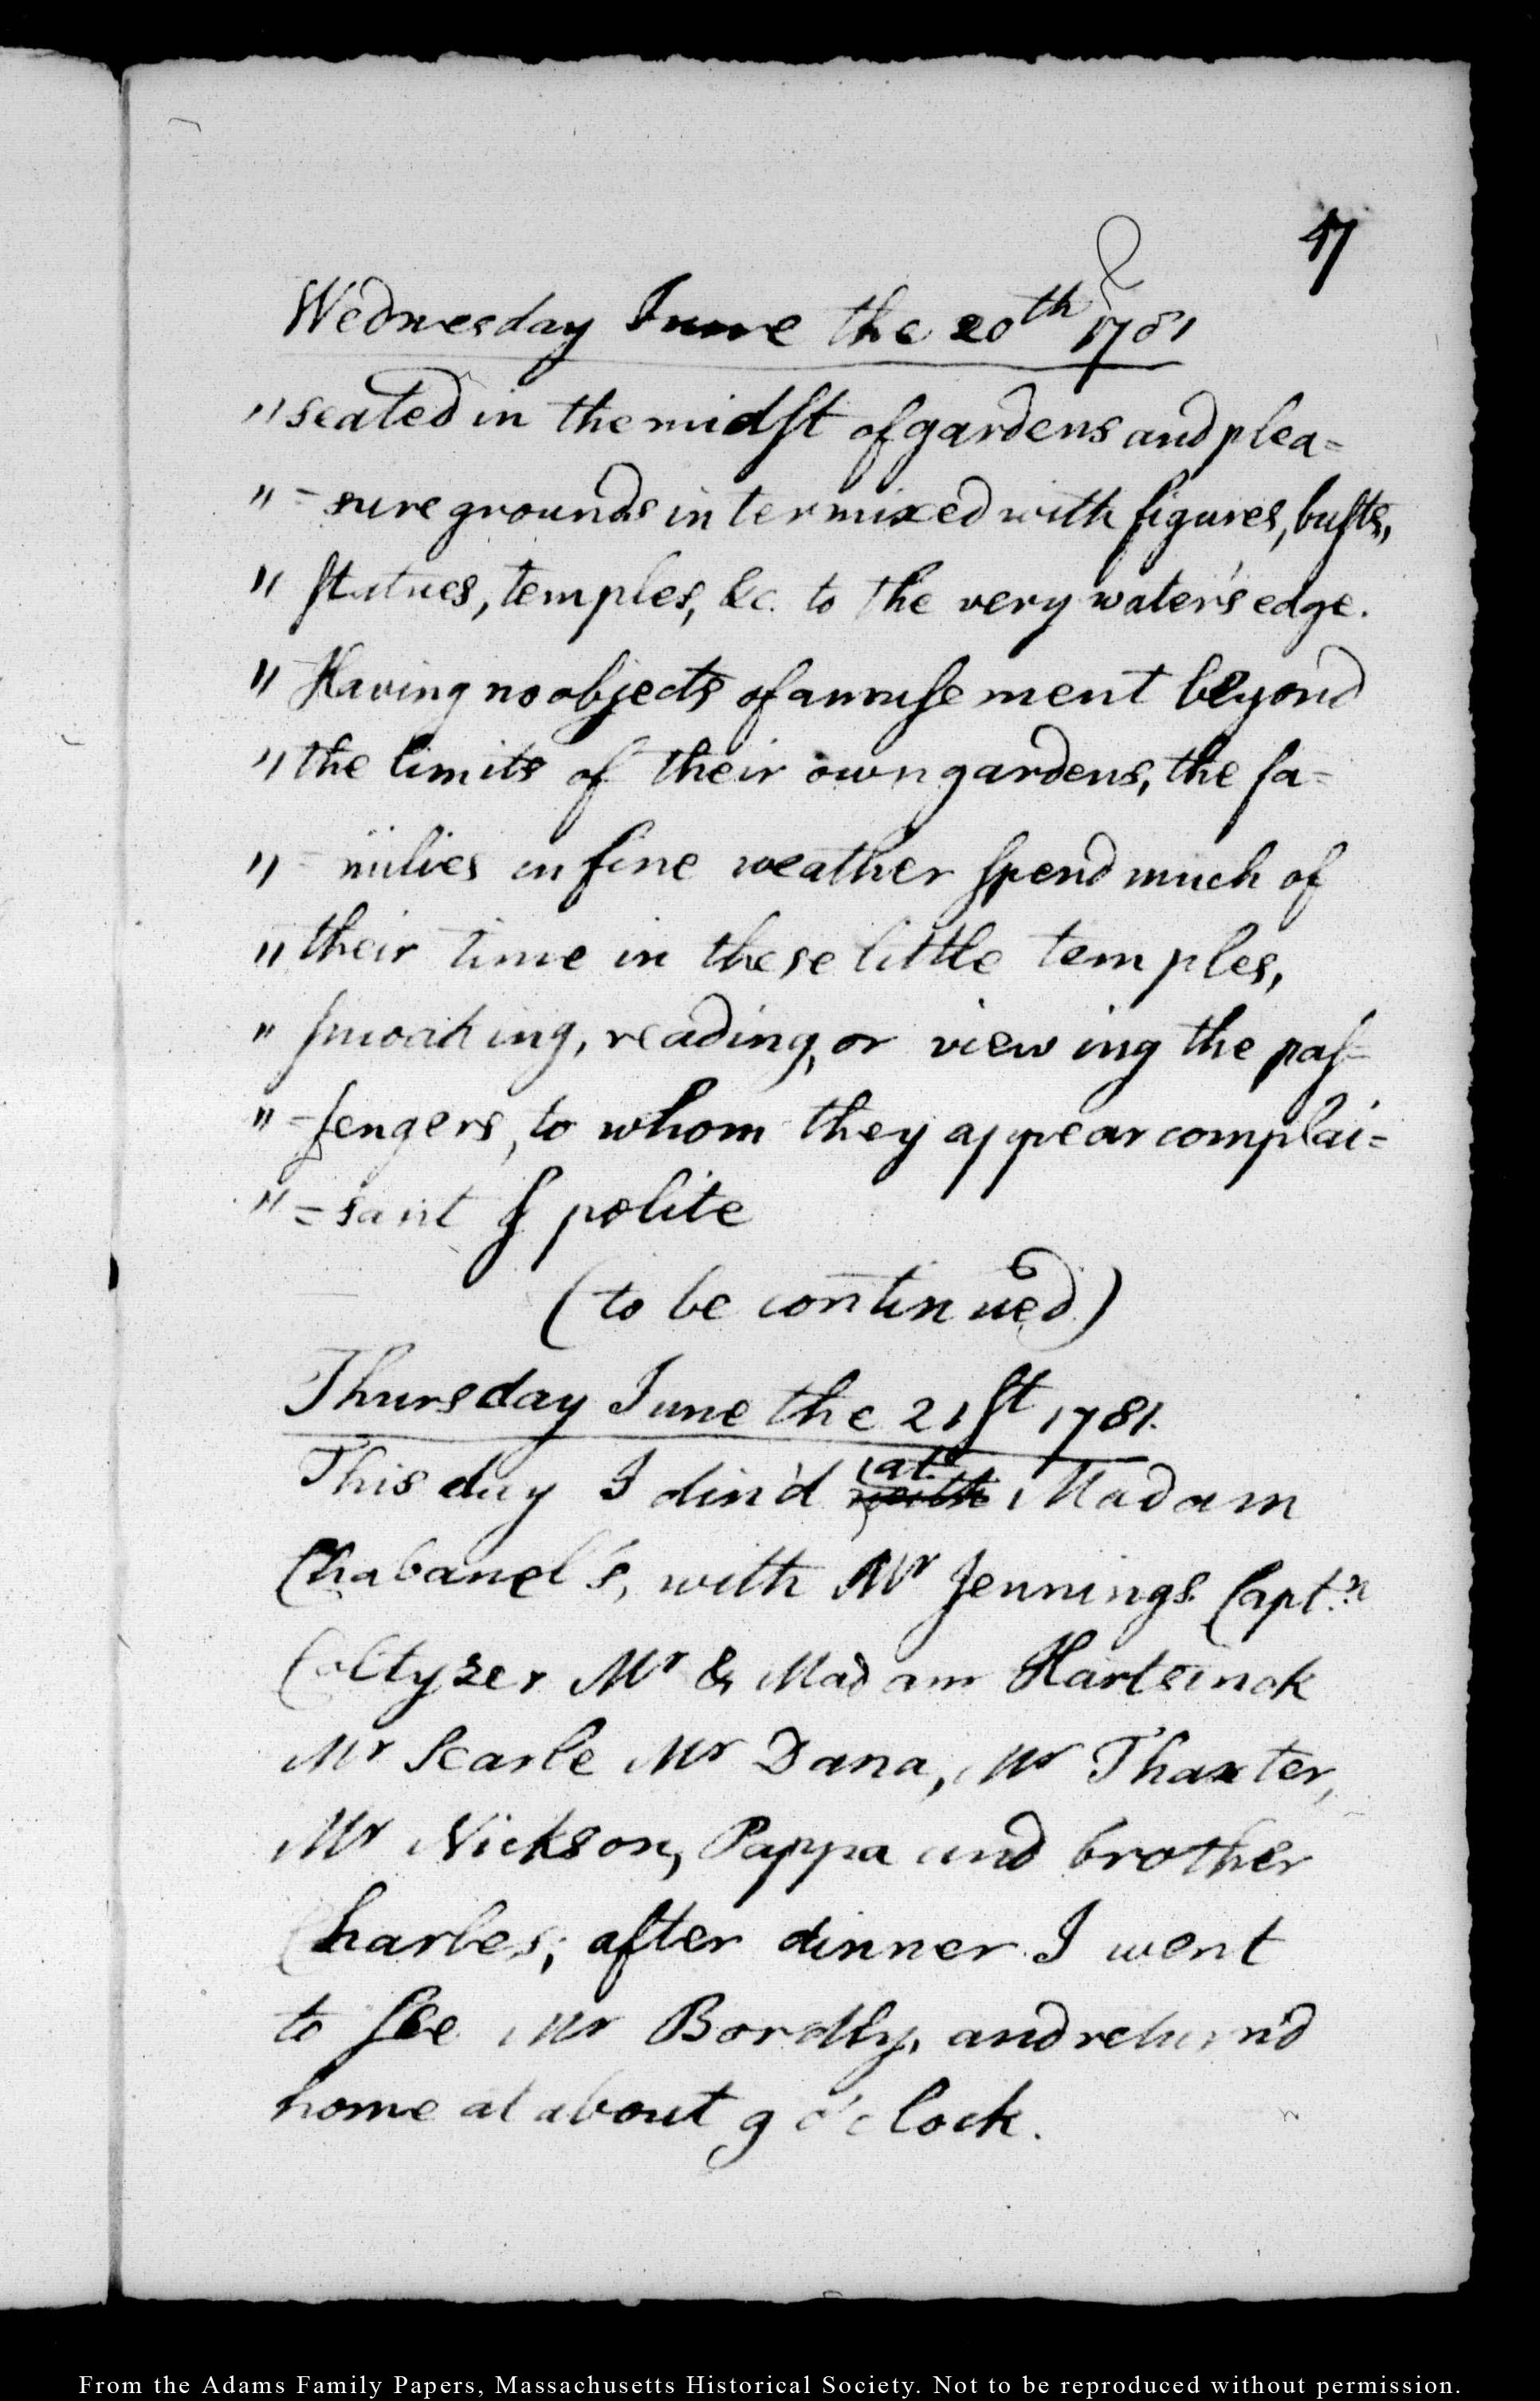 47
Wednesday June the 20th 1781
" seated in the midst of gardens and plea=
" =sure grounds intermixed with figures, busts,
" statues, temples, &c. to the very water's edge.
" Having no objects of amusement beyond
" the limits of their own gardens, the fa=
" =milies in fine weather spend much of
" their time in these little temples,
" smoaking, reading, or viewing the pas=
" =sengers, to whom they appear complai=
" =sant & polite
(to be continued)
Thursday June the 21st 1781.
at
This day I din'd with Madam
Chabanel's, with Mr Jennings Capt.n
Coltyzer Mr & Madam Hartsinck
Mr Searle Mr Dana, Mr Thaxter,
Mr Nickson, Pappa and brother
Charles; after dinner I went
to see Mr Bordly, and return'd
home at about 9 o'clock.
From the Adams Family Papers, Massachusetts Historical Society. Not to be reproduced without permission.